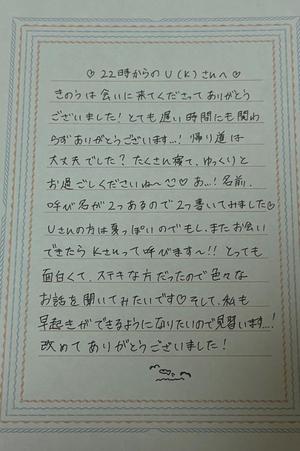 ♡ 22時からのU(K)さんへ ♡
きのうは会いに来てくださってありがとう
ございました!とても遅い時間にも関わ
らずありがとうございます…!帰り道は
大丈夫でした?たくさん寝て、ゆっくりと
お過ごしくださいね〜♡ あ…!名前、
呼び名が2つあるので2つ書いてみました♡
Uさんの方は業っぽいのでもし、またお会い
できたらKさんって呼びます〜!!とっても
面白くて、ステキな方だったので色々な
お話を聞いてみたいです♡そして、私も
早起きができるようになりたいので見習います…!
改めてありがとうございました!